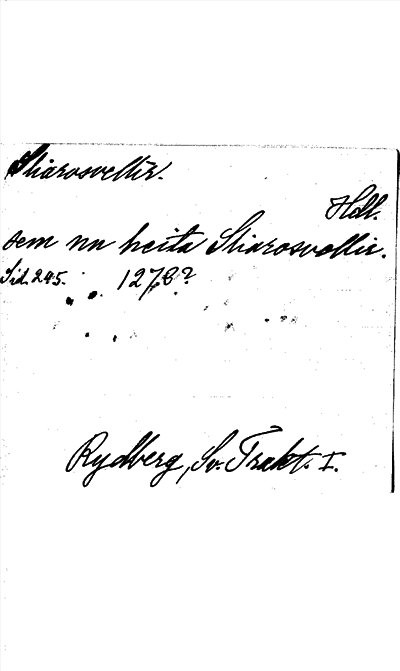 Stiarosvellir.
Hdl.
sem nu heita Stiarosvellir.
Sid. 245. 1278?
Rydberg, Sv. Trakt. I.